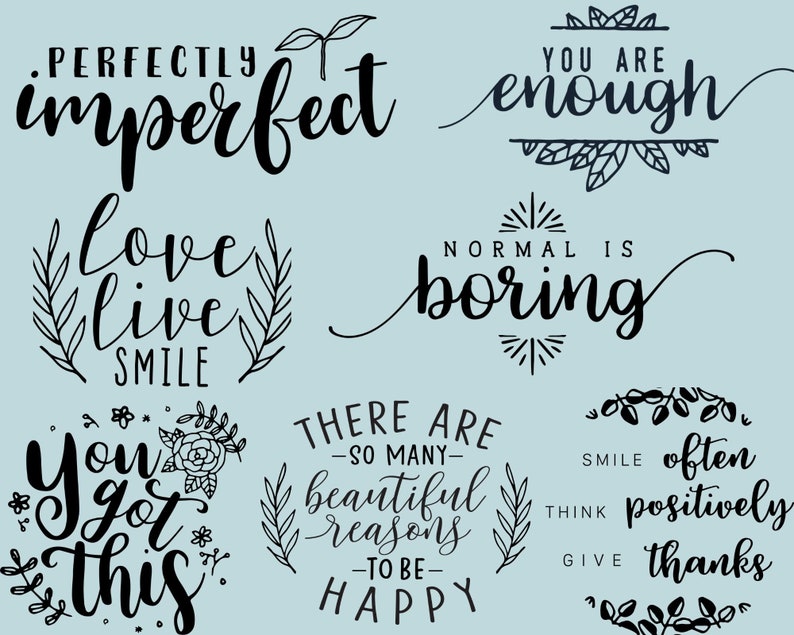 PERFECTLY
imperfect
YOU ARE
enough
love
live
SMILE
NORMAL IS
boring
You
got
this
THERE ARE
-SO MANY-
beautiful
reasons
-TO BE-
HAPPY
SMILE often
THINK positively
GIVE thanks